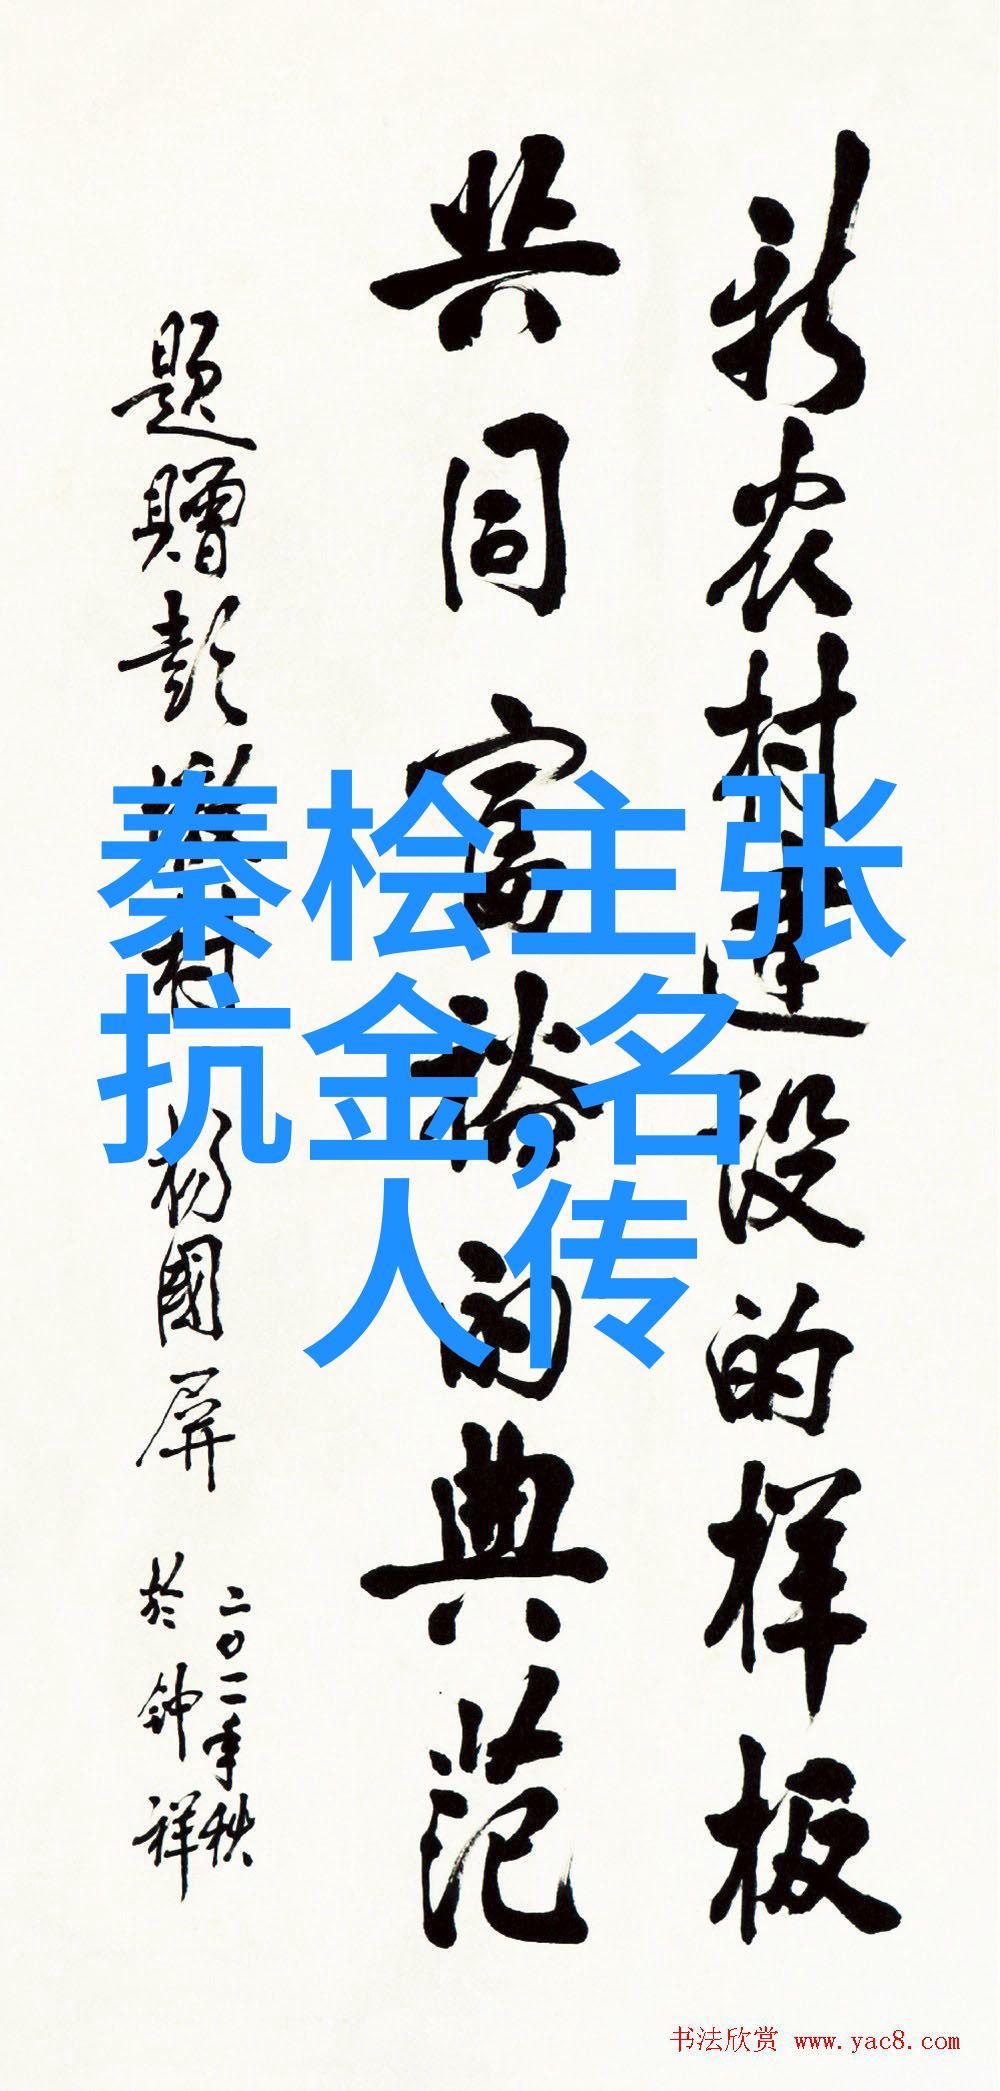 新农村建设的样板
共同富裕的典范
题赠彭墩村 杨国屏
二〇一一年秋
於钟祥
秦桧主张
抗金,名
人传
书法欣赏 www.yac8.com